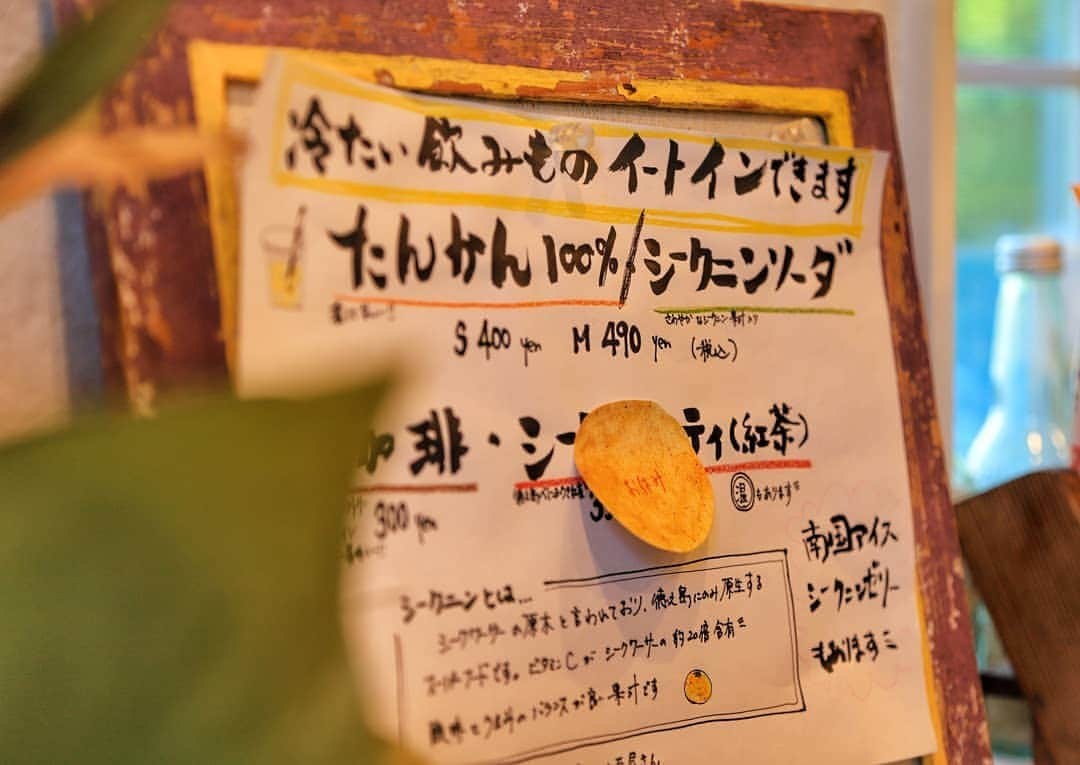 冷たい飲みもの イートインできます
たんかん100%/シークニンソーダ
さわやかなシークニン果汁入り
S 400 yen M 490 yen (税込)
珈琲・シー ティ(紅茶)
温もあります
300 yen
南国アイス
シークニンゼリー
もあります
シークニンとは…
シークワーサーの原木と言われており、徳之島にのみ原生する
スーパーフードです。ビタミンCがシークワーサーの約20倍含有
酸味とうま味のバランスが良い果汁です